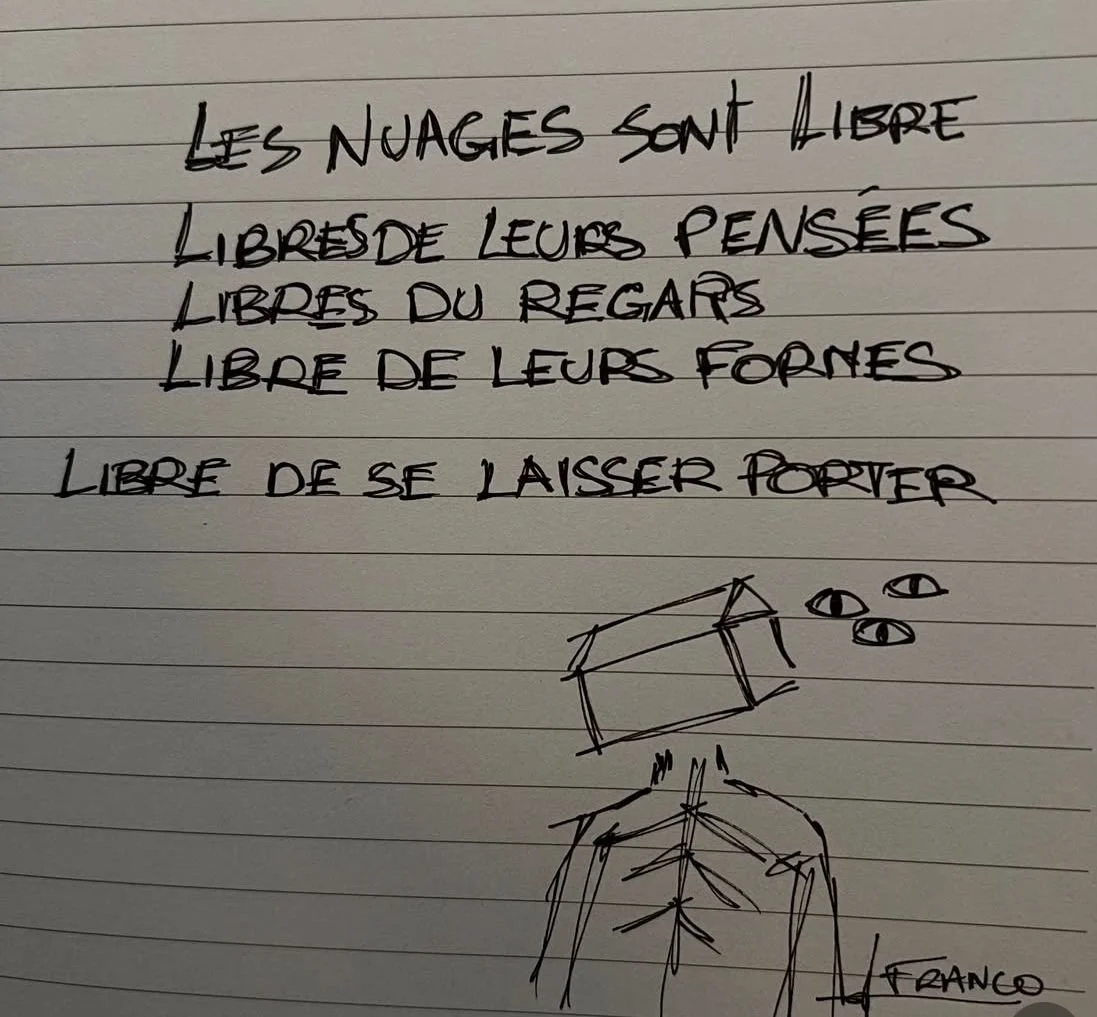 LES NUAGES SONT LIBRE
LIBRES DE LEURS PENSÉES
LIBRES DU REGARS
LIBRE DE LEURS FORMES
LIBRE DE SE LAISSER PORTER
FRANCO